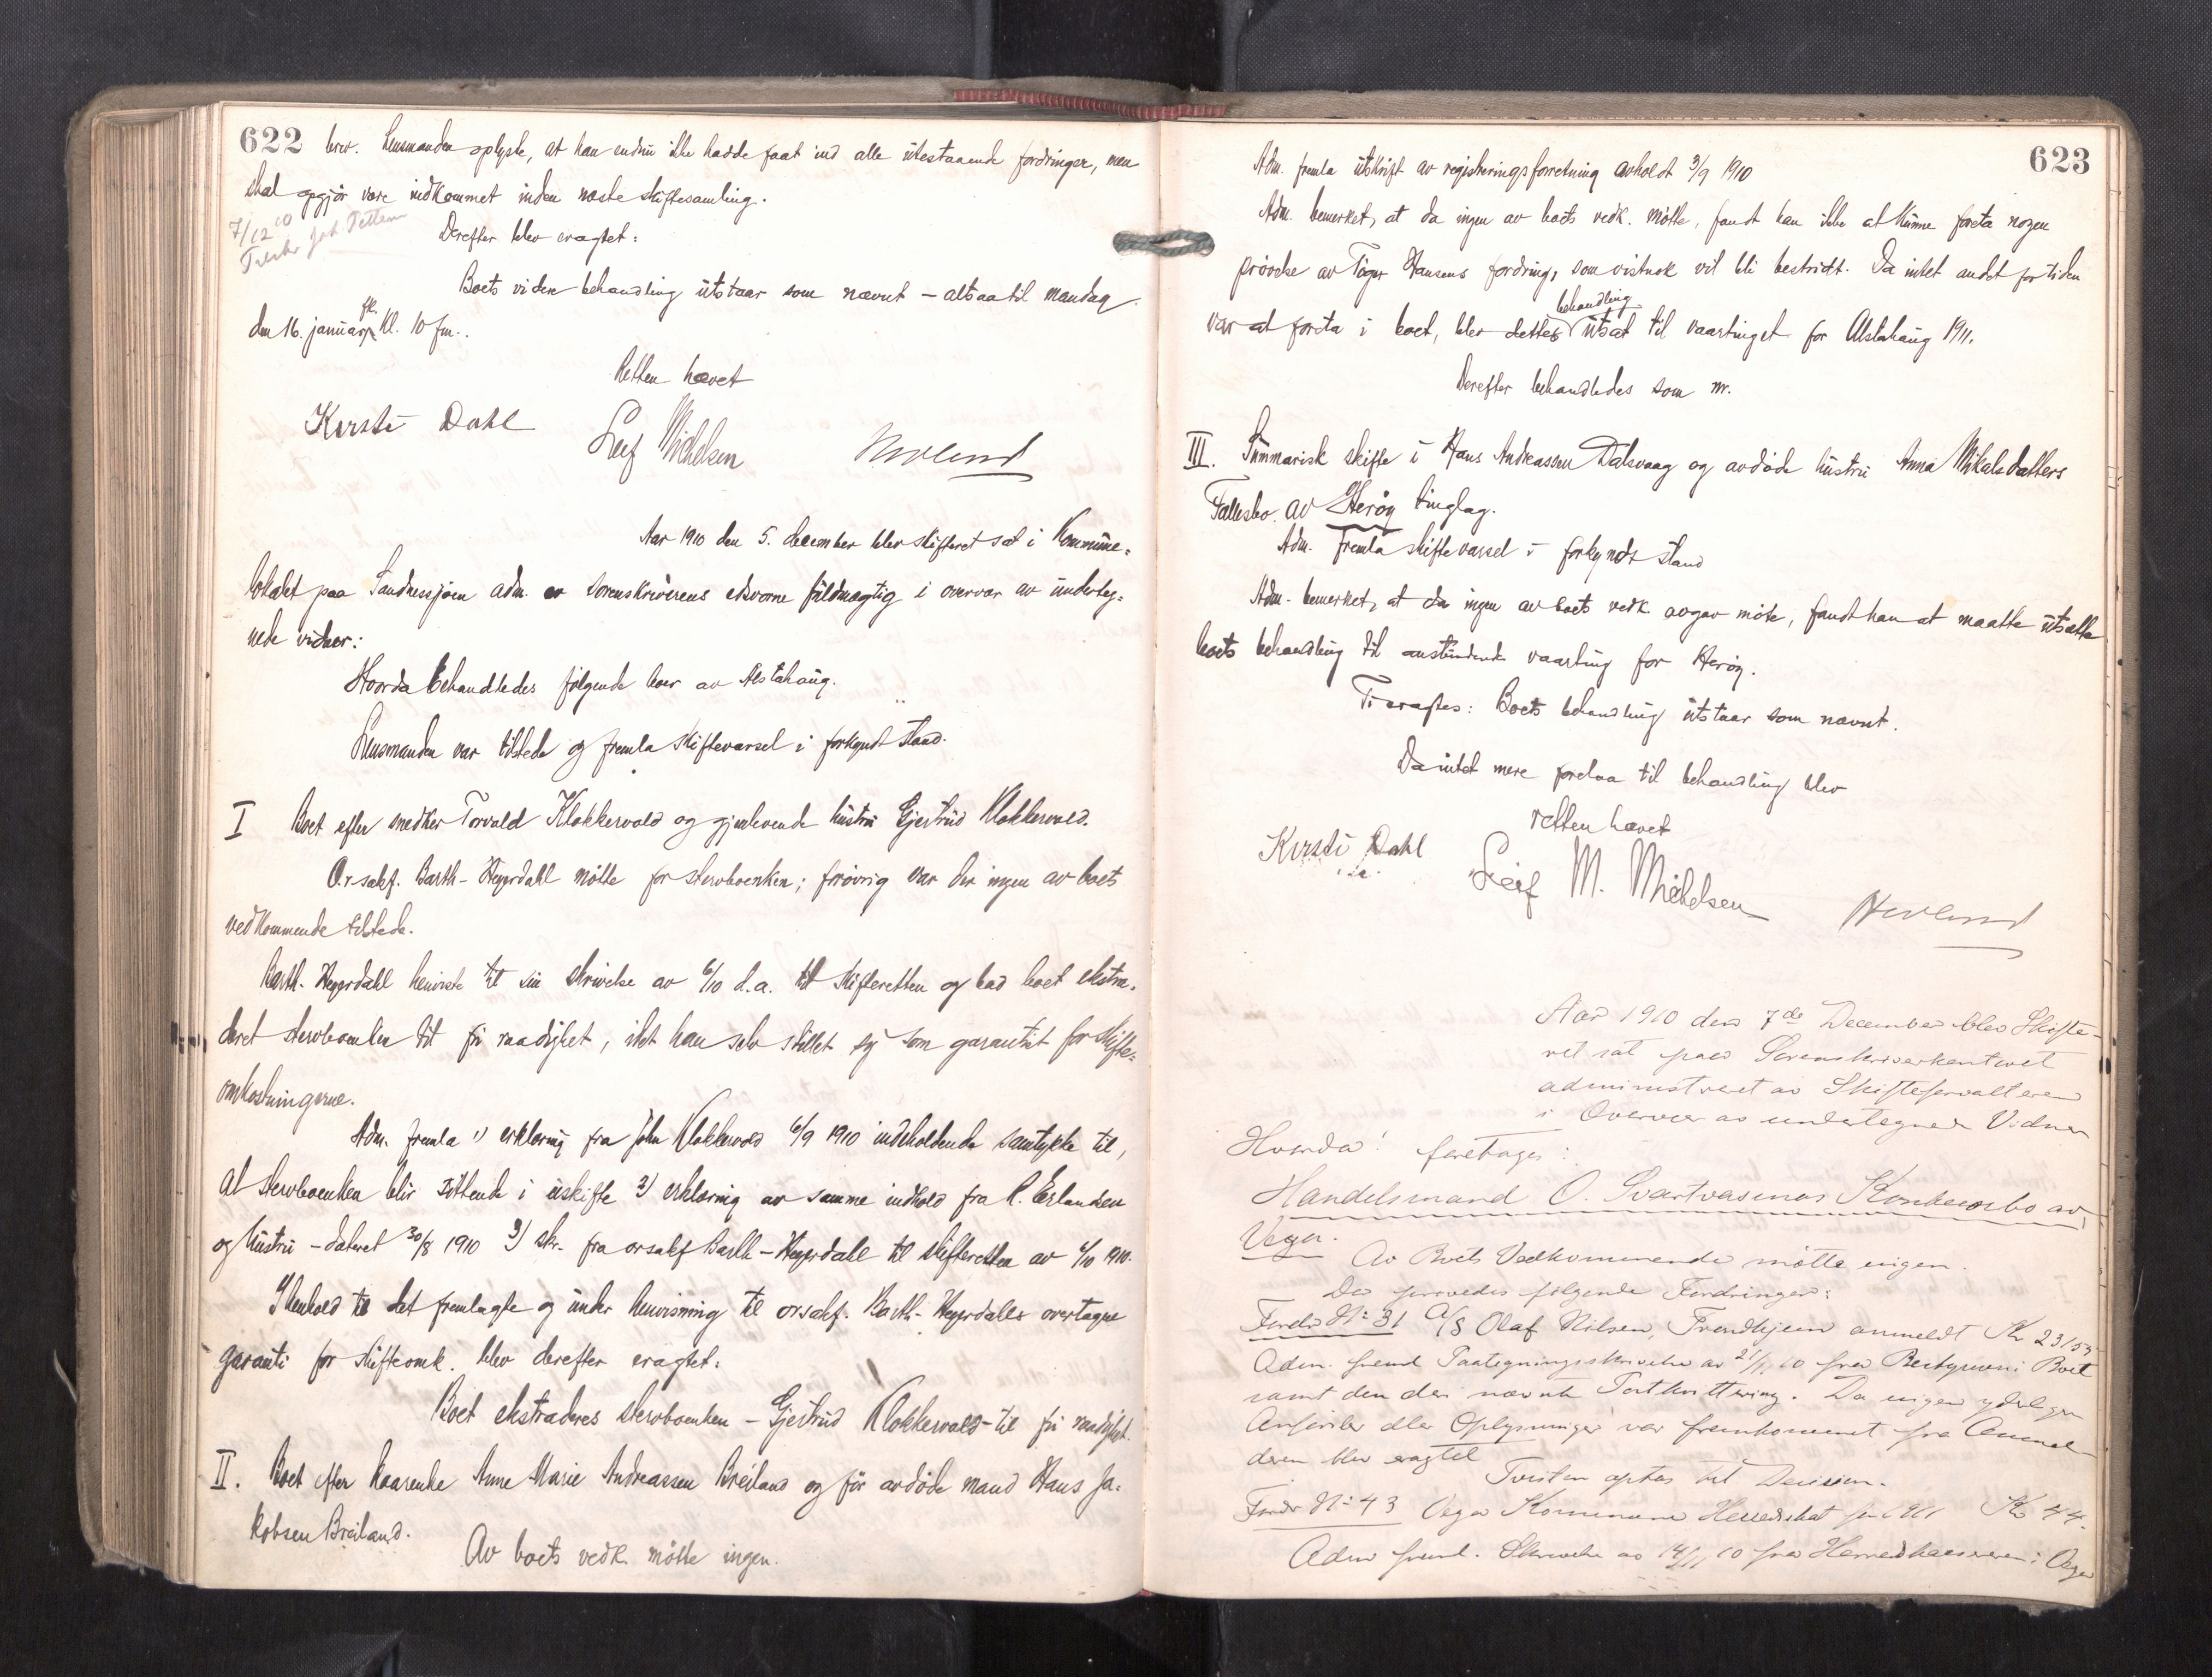 622
brev. Lensmanden oplyste, at han endnu ikke hadde faat ind alle utestaaende fordringer, men
skal opgjør være indkommet inden næste skiftesamling.
7/12 10
Derefter blev eragtet:
Boets videre behandling utstaar som nævnt – altsaa til mandag
den 16. januar fk. kl. 10 fm..
Retten hævet
Kirsti Dahl Leif Michelsen
Aar 1910 den 5. december blev skifteret sat i Kommune-
lokalet paa Sandnessjøen adm. av sorenskriverens edsvorne fuldmægtig i overvær av underteg-
nede vidner:
Hvorda behandledes følgende boer av Alstahaug.
Lensmanden var tilstede og fremla skiftevarsel i forkyndt stand.
I Boet efter snedker Torvald Klokkervold og gjenlevende hustru Gjertrud Klokkervold.
O.r.sakf. Barth-Heyerdahl møtte for stervboenken; forøvrig var der ingen av boets
vedkommende tilstede.
Barth-Heyerdahl henviste til sin skrivelse av 6/10 d.a. til skifteretten og bad boet ekstra-
deret stervboenken til fri raadighet, idet han selv stillet sig som garantist for skifte-
omkostningerne.
Adm. fremla 1) erklæring fra John Klokkervold 6/9 1910 indeholdende samtykke til,
at stervboenken blir sittende i uskifte 2) erklæring av samme indhold fra R. Erlandsen
og hustru – dateret 30/8 1910 3) skr. fra orsakf Barth-Heyerdahl til skifteretten av 6/10 1910.
I henhold til det fremlagte og under henvisning til orsakf. Barth-Heyerdahls overtagne
garanti for skifteomk. blev derefter eragtet:
Boet ekstraderes stervboenken – Gjertrud Klokkervold – til fri raadighet.
II. Boet efter kaarenke Anne Marie Andreassen Breiland og før avdøde mand Hans Ja-
kobsen Breiland.
Av boets vedk. møtte ingen.
623
Adm. fremla utskrift av registreringsforretning avholdt 3/9 1910
Adm. bemerket, at da ingen av boets vedk. møtte, fandt han ikke at kunne foreta nogen
prøvelse av Hansens fordring, som vistnok vil bli bestridt. Da intet andet for tiden
var at foreta i boet, blev dettes behandling utsat til vaartinget for Alstahaug 1911.
Derefter behandledes som nr.
III. Summarisk skifte i Hans Andreassen Dalsvaag og avdøde hustru Anna Mikalsdatters
Fællesbo. av Herøy tinglag.
Adm. fremla skiftevarsel i forkyndt stand
Adm. bemerket, at da ingen av boets vedk avgav møte, fandt han at maatte utsætte
boets behandling til anstundende vaarting for Herøy.
Ti eragtes: Boets behandling utstaar som nævnt.
Da intet mere forelaa til behandling blev
retten hævet
Kirsti Dahl Leif M. Michelsen
Aar 1910 den 7de December blev Skifte-
ret sat paa Sorenskriverkontoret
administreret av Skifteforvalteren
i Overvær av undertegnede Vidner
Hvorda! foretages:
Handelsmand O. Svartvasmos Konkursbo av
Vega.
Av Boets Vedkommende møtte ingen.
Der prøvedes følgende Fordringer:
Fordr No 31 A/S Olaf Nilsen, Trondhjem anmeldt Kr 231.53
Adm. freml Paategningsskrivelse av 21/11 10 fra Bestyreren i Boet
samt den der nævnte Postkvittering. Da ingen yderligere
Anførsler eller Oplysninger var fremkommet fra Anmel-
deren blev eragtet
Tvisten optas til Decision.
Fordr No 43 Vega Kommune Herredsskat Kr 44.
Adm freml. Skrivelse av 14/11 10 fra Herredskassereren i Vega